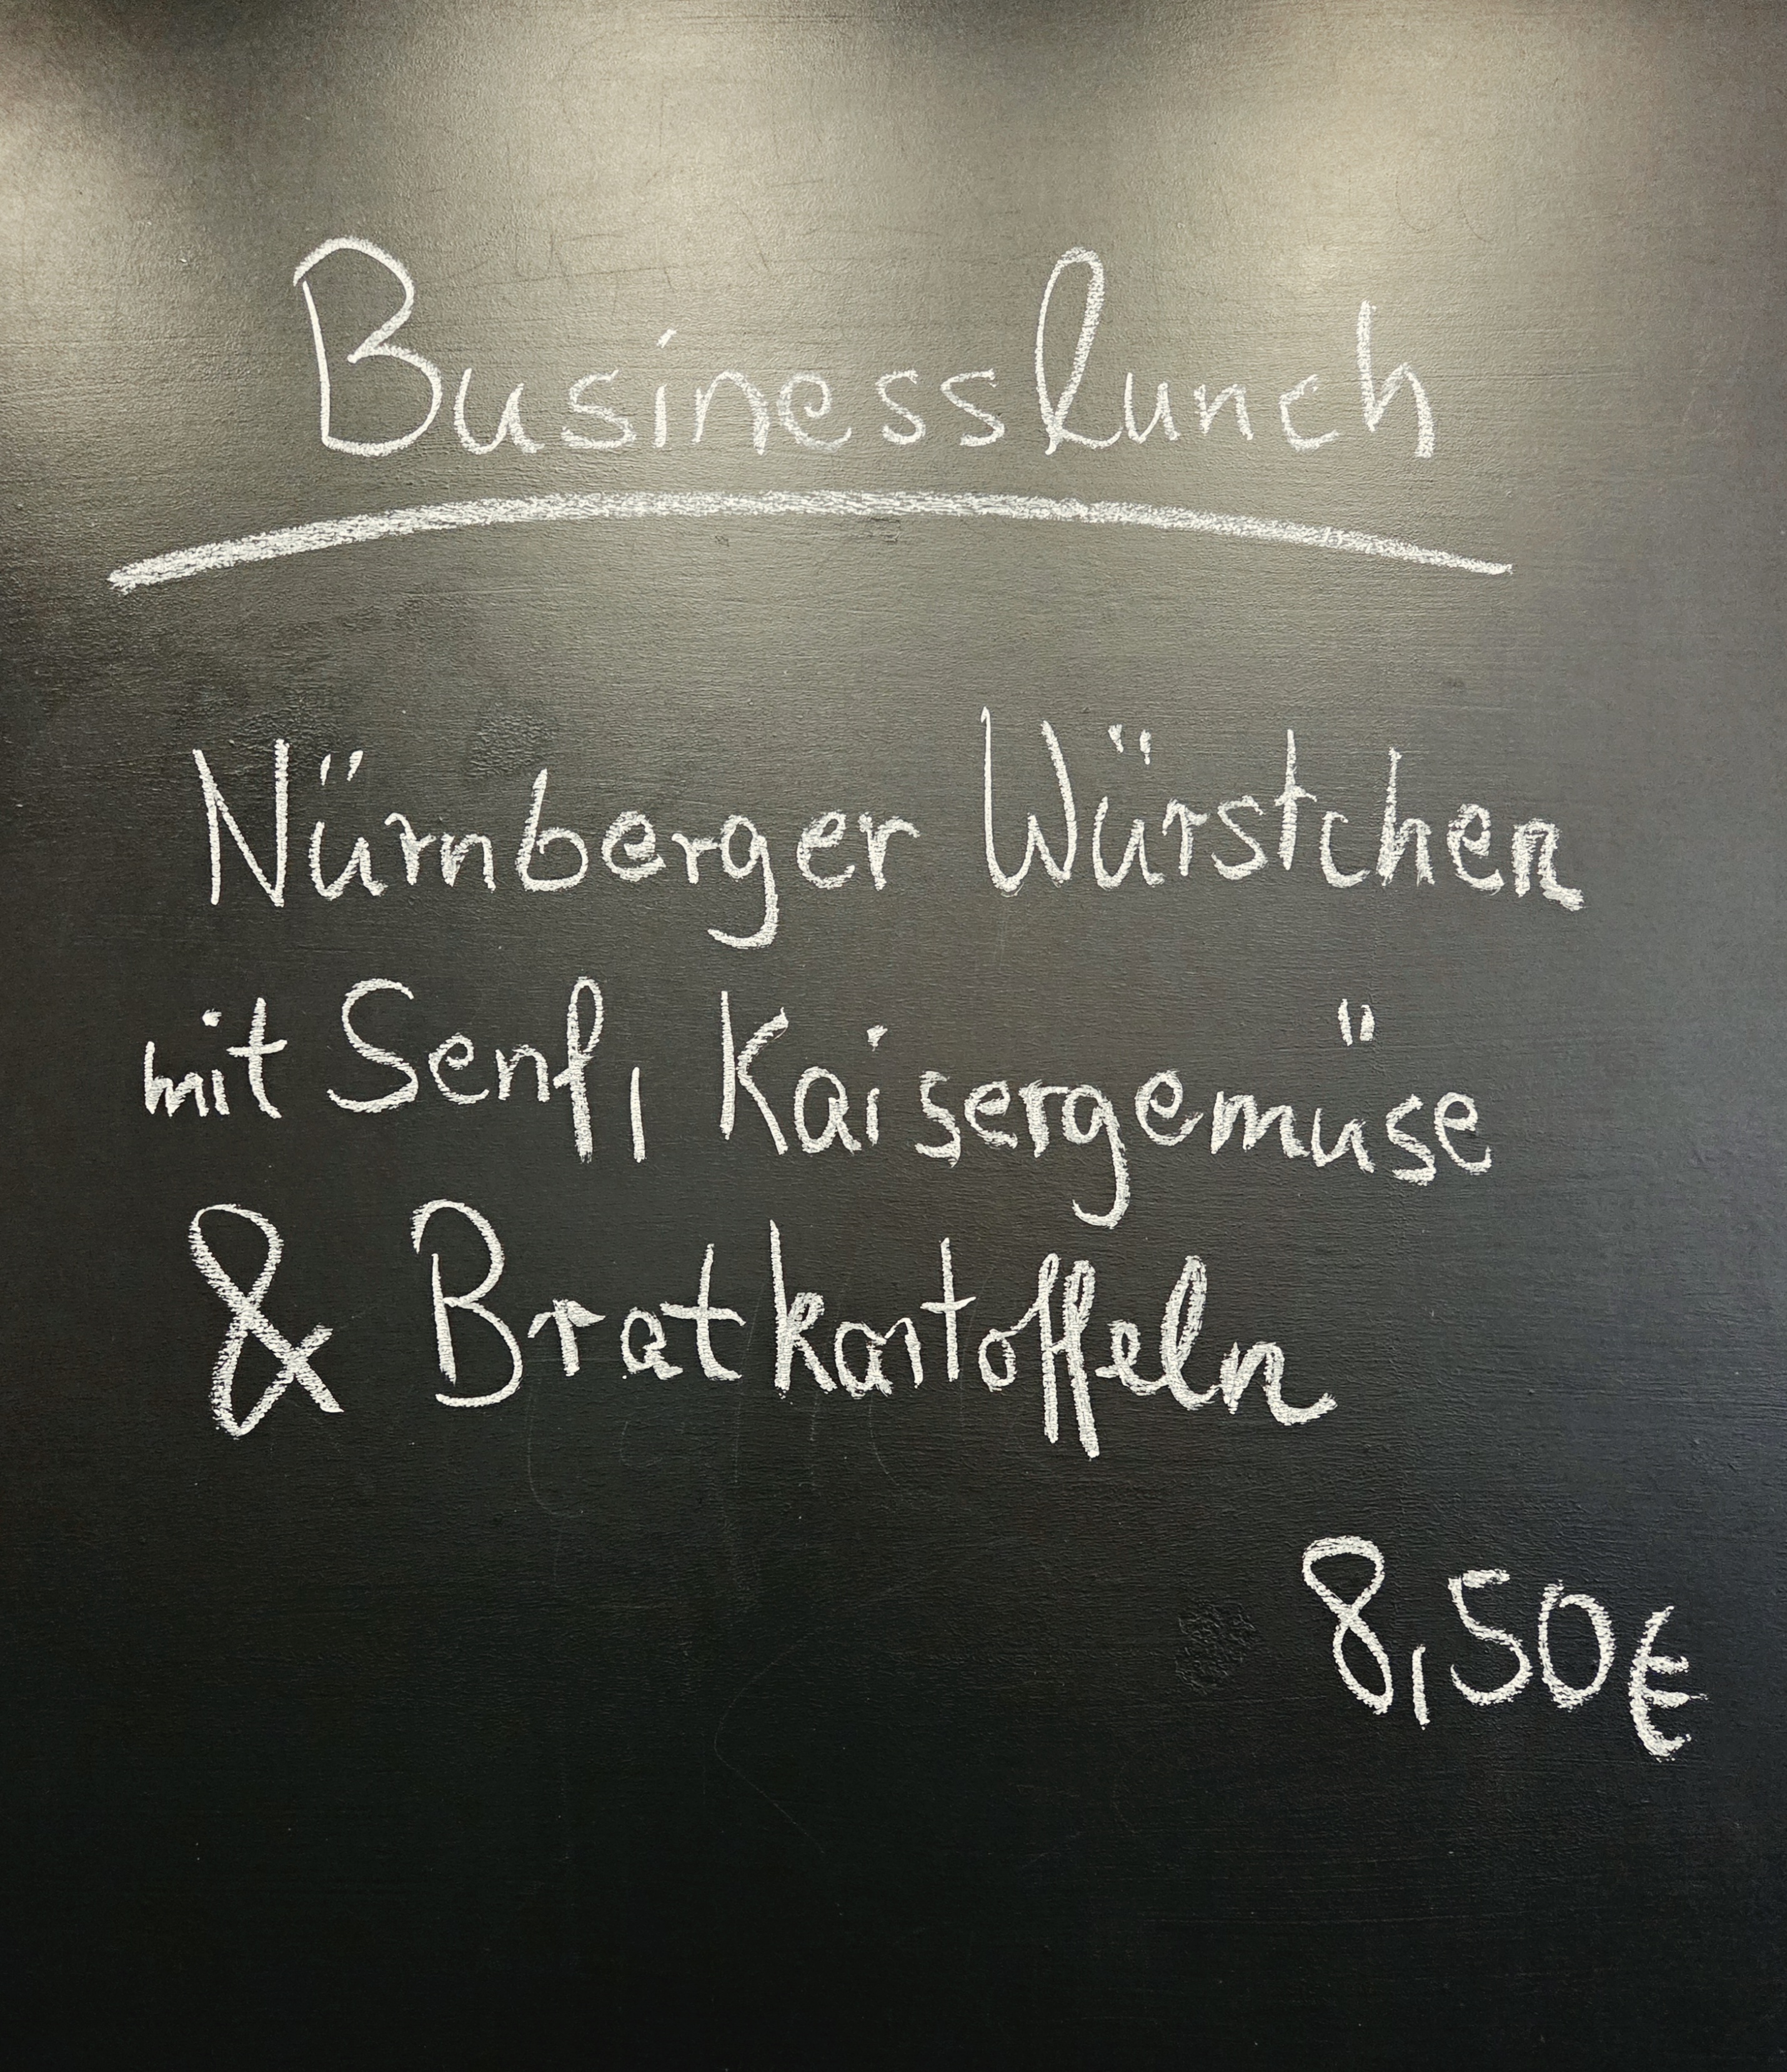 Businesslunch
Nürnberger Würstchen
mit Senf, Kaisergemüse
& Bratkartoffeln
8,50€